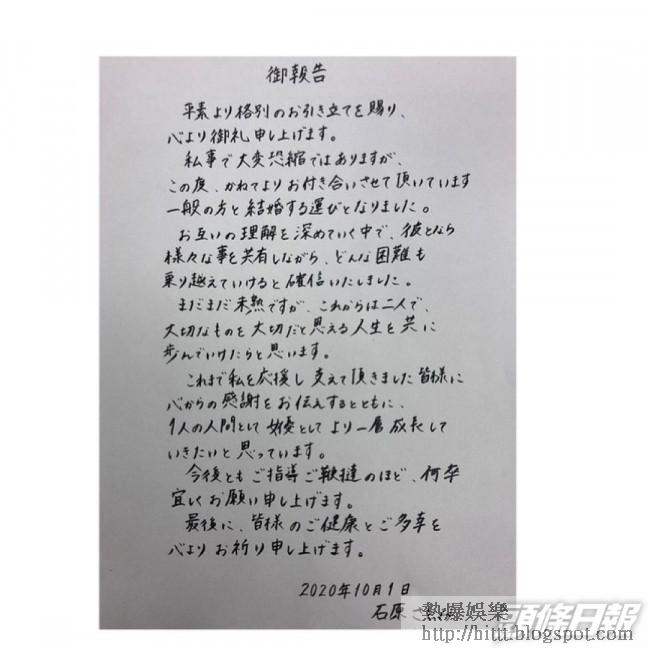 御報告
平素より格別のお引き立てを賜り、
心より御礼申し上げます。
私事で大変恐縮ではありますが、
この度、かねてよりお付き合いさせて頂いています
一般の方と結婚する運びとなりました。
お互いの理解を深めていく中で、彼となら
様々な事を共有しながら、どんな困難も
乗り越えていけると確信いたしました。
まだまだ未熟ですが、これからは二人で、
大切なものを大切だと思える人生を共に
歩んでいけたらと思います。
これまで私を応援し支えて頂きました皆様に
心からの感謝をお伝えするとともに、
1人の人間として女優としてより一層成長して
いきたいと思っています。
今後ともご指導ご鞭撻のほど、何卒
宜しくお願い申し上げます。
最後に、皆様のご健康とご多幸を
心よりお祈り申し上げます。
2020年10月1日
石原さ
熱爆娛樂
頭條日報
http://hittt.blogspot.com